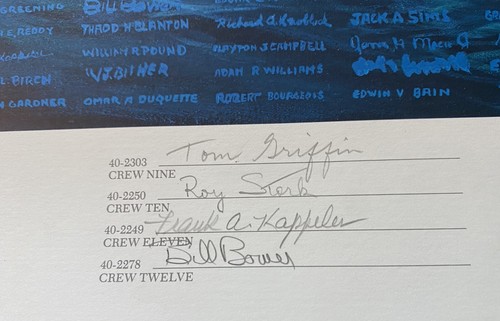 GREENING BILL BOWER
E. REEDY THADD H BLANTON Richard A Knobloch JACK A SIMS
WILLIAM R POUND CLAYTON J CAMPBELL
L BIRCH WJ BITHER ADAM R WILLIAMS
N GARDNER OMAR A DUQUETTE ROBERT BOURGEOIS EDWIN V BAIN
40-2303 Tom Griffin
CREW NINE
40-2250 Roy Stork
CREW TEN
40-2249 Frank A. Kappeler
CREW ELEVEN
40-2278 Bill Bower
CREW TWELVE